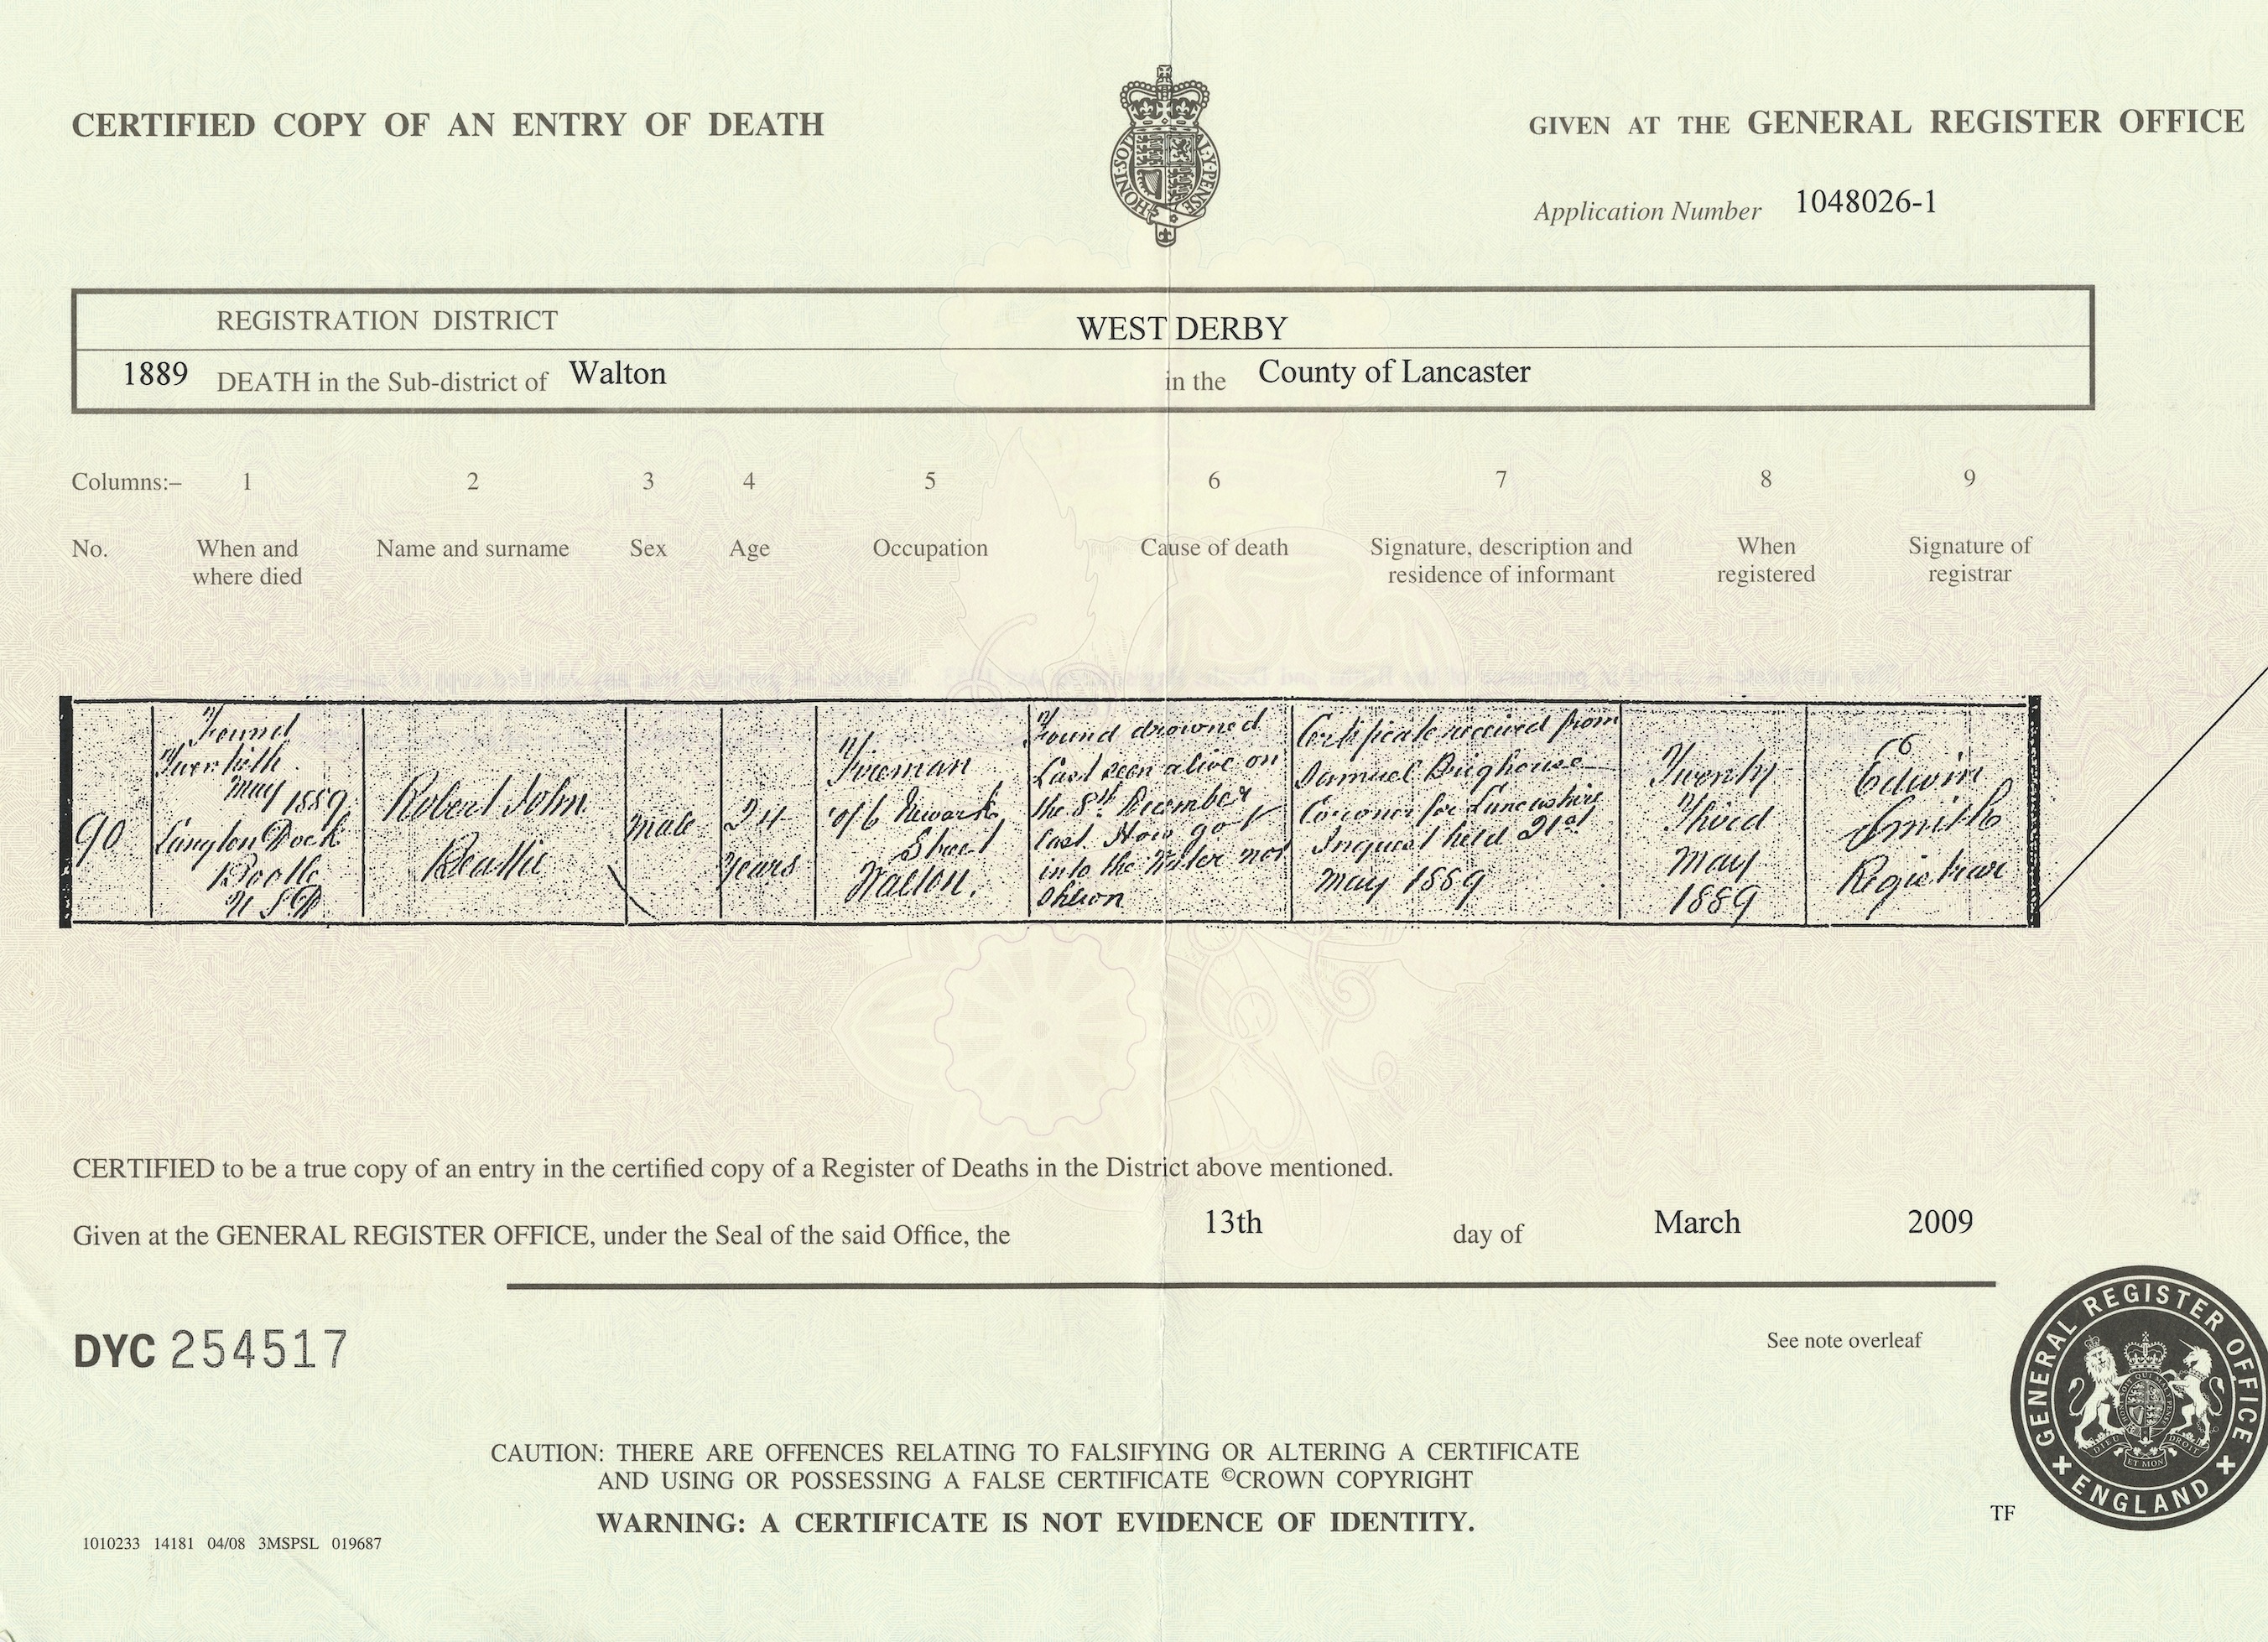 CERTIFIED COPY OF AN ENTRY OF DEATH
GIVEN AT THE GENERAL REGISTER OFFICE
HONI·SOI AL·Y·PENSE
Application Number 1048026-1
REGISTRATION DISTRICT WEST DERBY
1889 DEATH in the Sub-district of Walton in the County of Lancaster
Columns:– 1 2 3 4 5 6 7 8 9
No. When and where died Name and surname Sex Age Occupation Cause of death Signature, description and residence of informant When registered Signature of registrar
90
Found
Twentieth
May 1889
Langton Dock
Bootle
U S D
Robert John
Beattie
Male
24
Years
Fireman
of 6 Newark
Street
Walton.
Found drowned
Last seen alive on
the 8th December
last How got
into the Water not
Shewn
Certificate received from
Samuel Brighouse
Coroner for Lancashire
Inquest held 21st
May 1889
Twenty
Third
May
1889
Edwin
Smith
Registrar
CERTIFIED to be a true copy of an entry in the certified copy of a Register of Deaths in the District above mentioned.
Given at the GENERAL REGISTER OFFICE, under the Seal of the said Office, the 13th day of March 2009
DYC 254517
See note overleaf
GENERAL REGISTER OFFICE
DIEU ET MON DROIT
ENGLAND
CAUTION: THERE ARE OFFENCES RELATING TO FALSIFYING OR ALTERING A CERTIFICATE
AND USING OR POSSESSING A FALSE CERTIFICATE ©CROWN COPYRIGHT
WARNING: A CERTIFICATE IS NOT EVIDENCE OF IDENTITY.
TF
1010233 14181 04/08 3MSPSL 019687